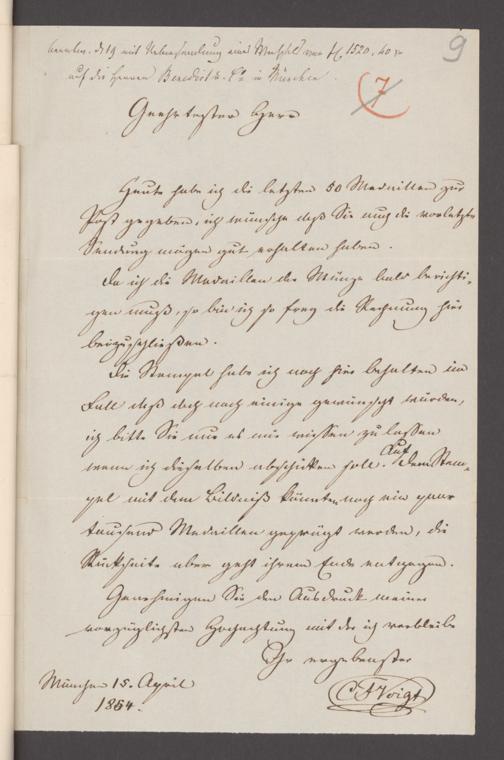 beantw. d. 19 mit Uebersendung eines Wechsels von fl. 1520. 40 xr
auf die Herren Benedict & Co in München.
9
7
Geehrtester Herr
Heute habe ich die letzten 50 Medaillen zur
Post gegeben, ich wünsche daß Sie auch die vorletzte
Sendung mögen gut erhalten haben.
Da ich die Medaillen der Münze bald berichti-
gen muß, so bin ich so frey die Rechnung hier
beizuschließen.
Die Stempel habe ich noch hier behalten im
Fall daß doch noch einige gewünscht würden,
ich bitte Sie nur es mir wissen zu lassen
wenn ich dieselben abschicken solle. Auf dem Stem-
pel mit dem Bildniß könnten noch ein paar
tausend Medaillen geprägt werden, die
Rückseite aber geht ihrem Ende entgegen.
Genehmigen Sie den Ausdruck meiner
vorzüglichsten Hochachtung mit der ich verbleibe
Ihr ergebenster
München 15. April
C F Voigt
1854.